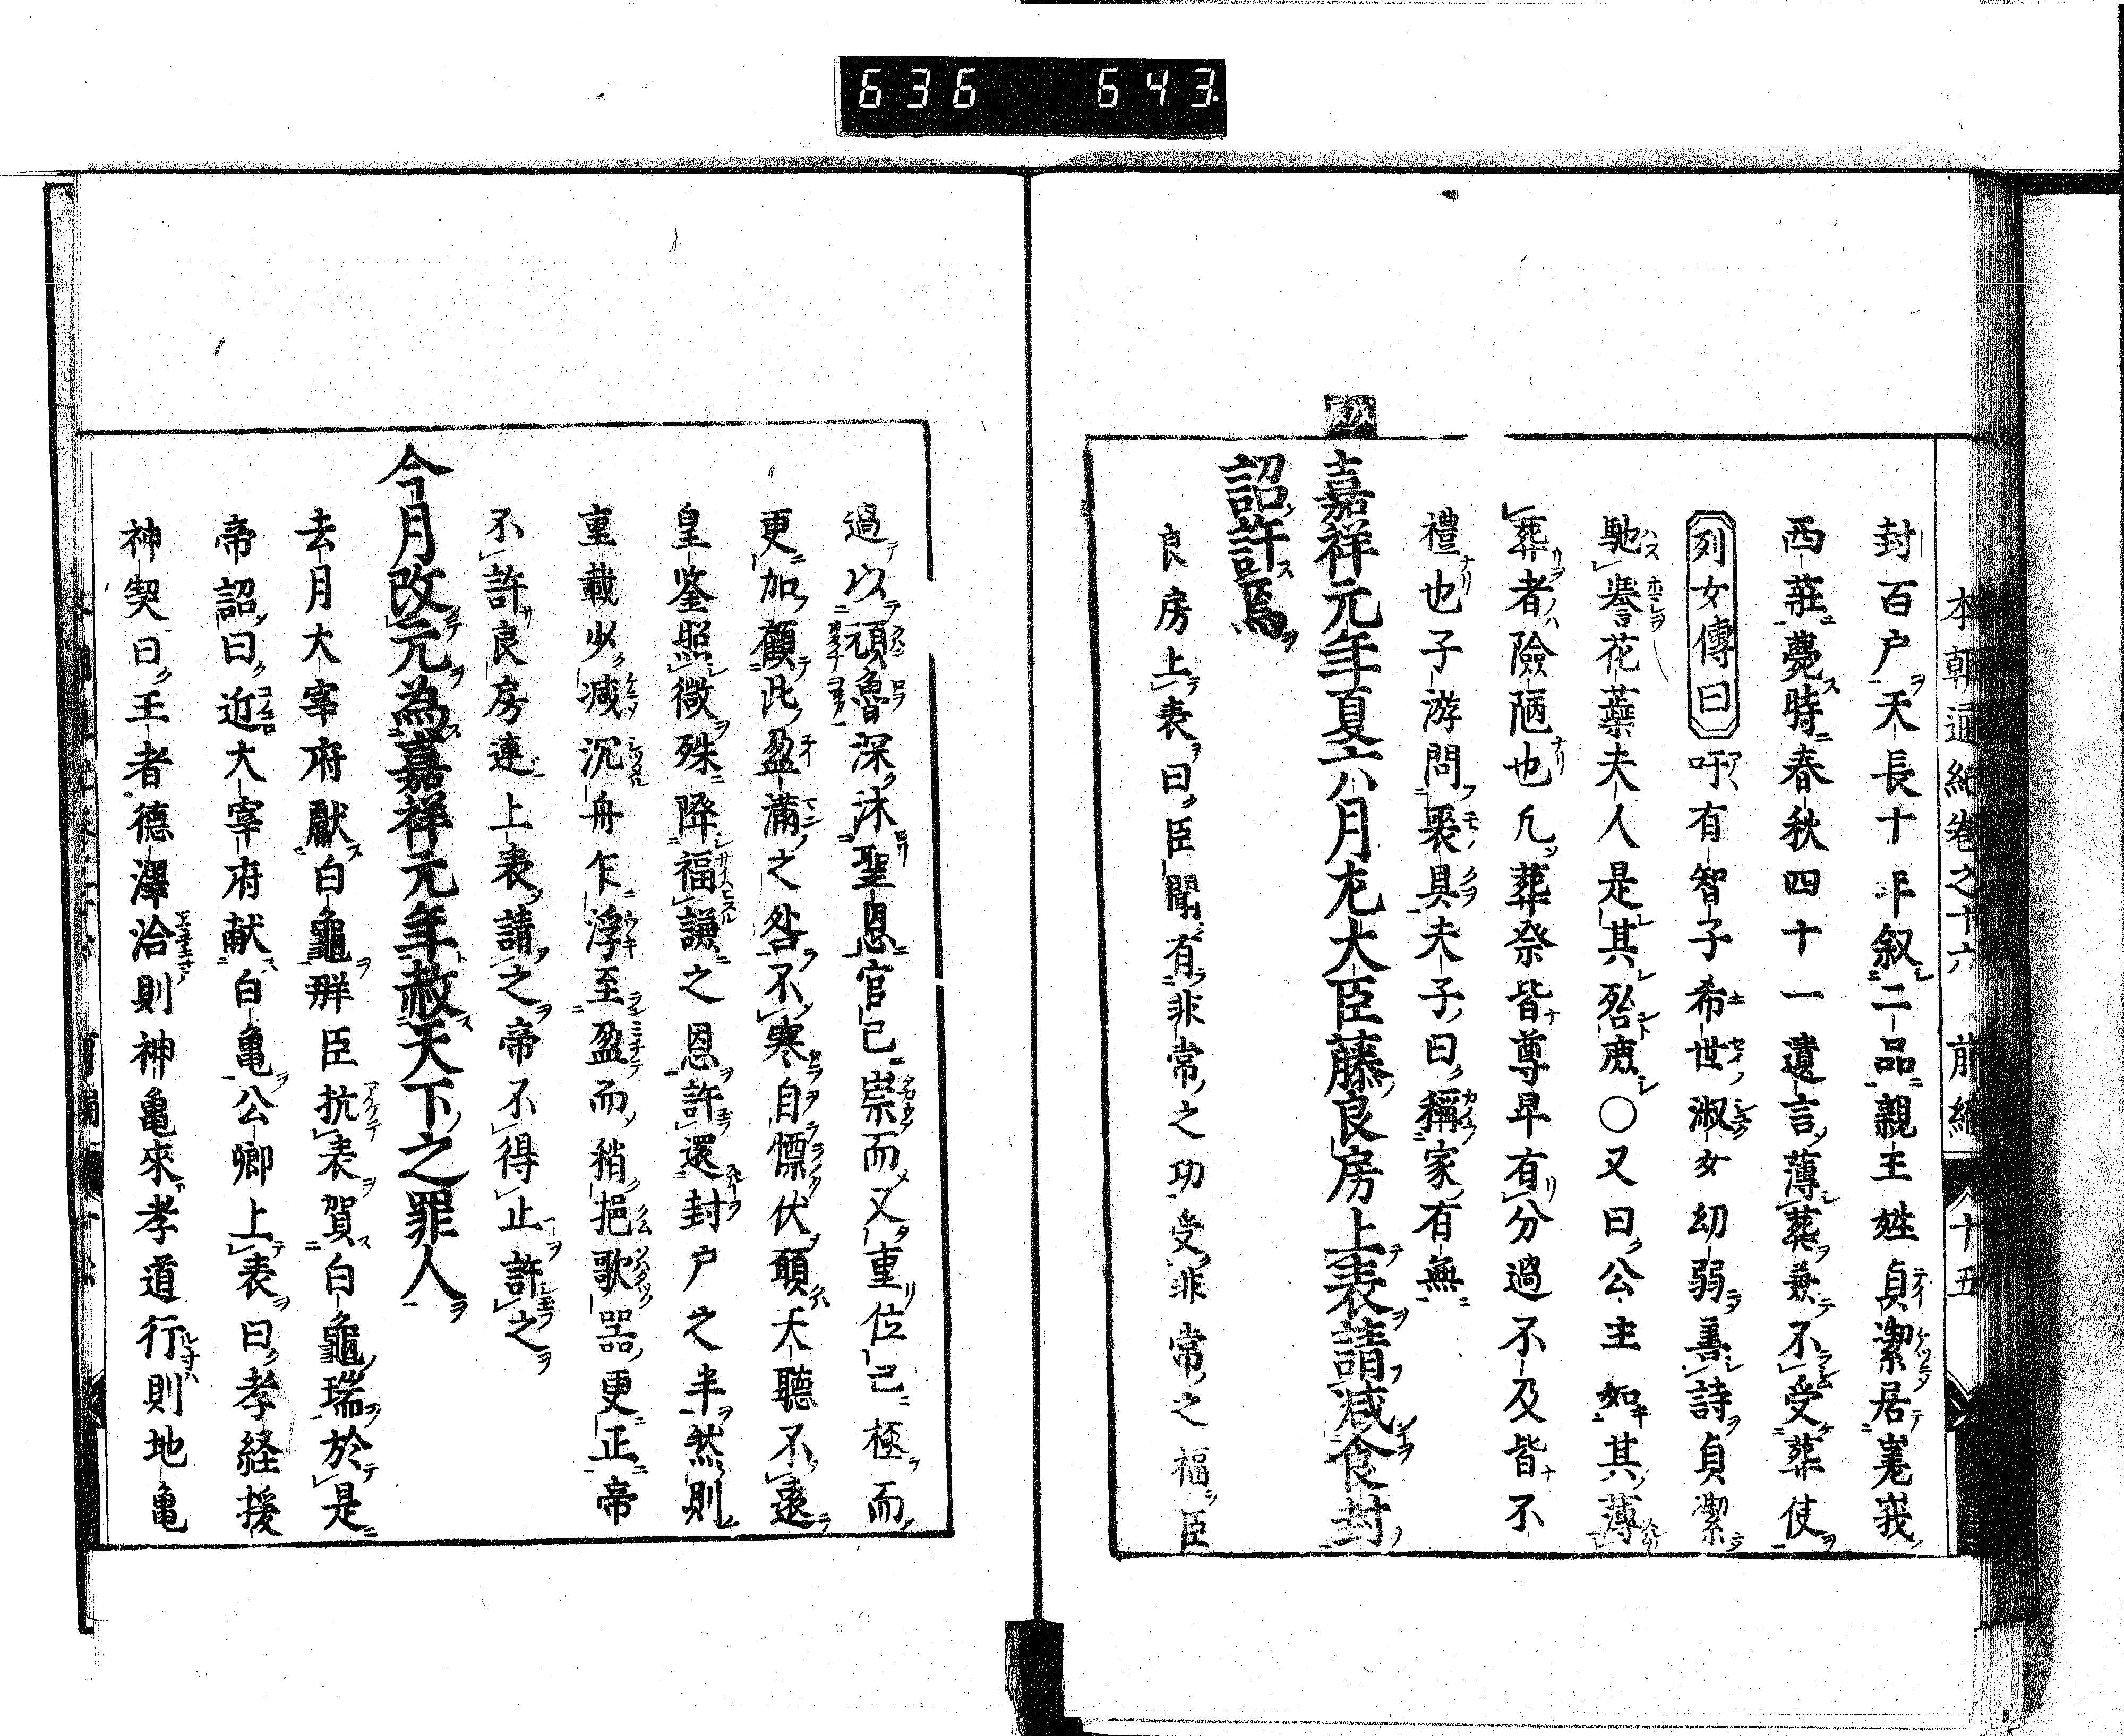 636 643
本朝通紀卷之十六 前編 十五
封百户天長十年叙二品親王姓貞潔居嵬峩
西莊薨時春秋四十一遺言薄葬兼不受葬使
列女傳曰吁有智子希世淑女幼弱善詩貞潔
馳譽花蘂夫人是其殆庶〇又曰公主如其薄
葬者險陋也凡葬祭皆尊卑有分過不及皆不
禮也子游問喪具夫子曰稱家有無
嘉祥元年夏六月左大臣藤良房上表請減食封
詔許焉
良房上表曰臣聞有非常之功受非常之福臣
過以頑魯深沐聖恩官已崇而又重位已極而
更加顧此盈滿之咎不寒自慄伏願天聽不遠
皇鉴照微殊降福謙之恩許還封户之半然則
重載少減沉舟乍浮至盈而稍挹欹器更正帝
不許良房連上表請之帝不得止許之
今月改元為嘉祥元年赦天下之罪人
去月大宰府獻白龜群臣抗表賀白龜瑞於是
帝詔曰近大宰府献白亀公卿上表曰孝経援
神契曰王者德澤洽則神亀來孝道行則地亀